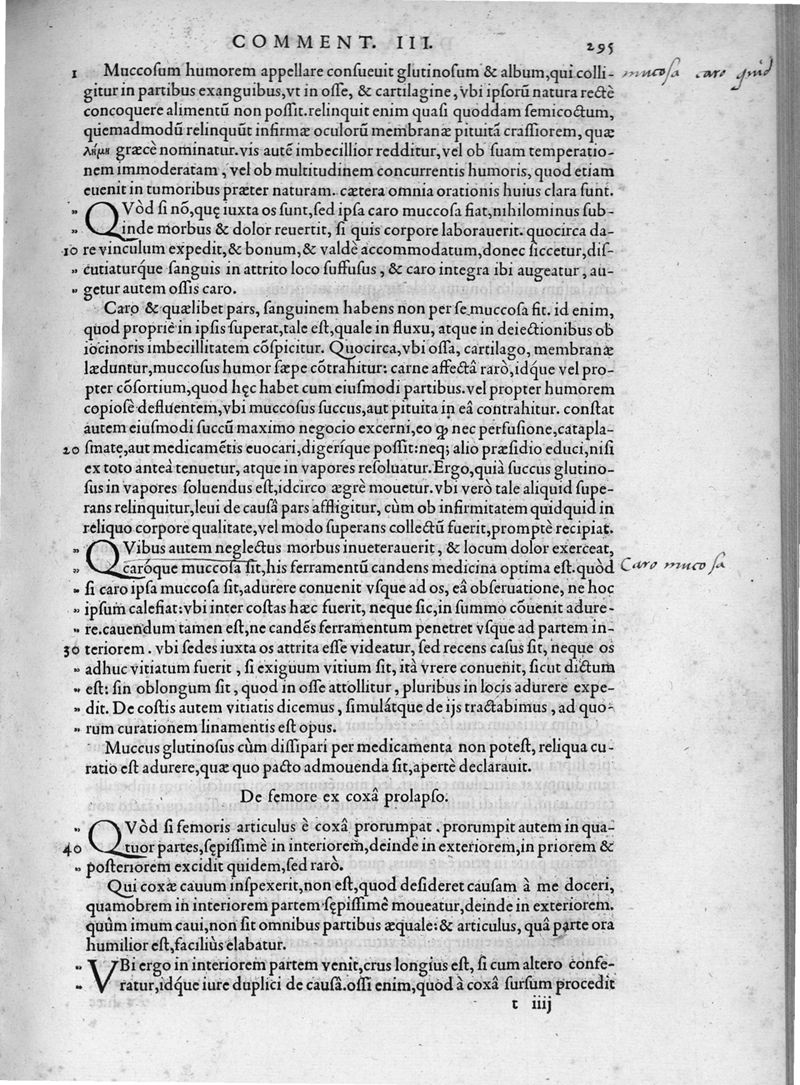 COMMENT. III. 295
1 Muccoſum humorem appellare conſueuit glutinoſum & album, qui colli- mucoſa caro quid
gitur in partibus exanguibus, vt in oſſe, & cartilagine, vbi ipſorũ natura rectè
concoquere alimentũ non poſſit. relinquit enim quaſi quoddam ſemicoctum,
quemadmodũ relinquũt infirmæ oculorũ membranæ pituitã craſſiorem, quæ
λήμη græcè nominatur. vis autẽ imbecillior redditur, vel ob ſuam temperatio-
nem immoderatam, vel ob multitudinem concurrentis humoris, quod etiam
euenit in tumoribus præter naturam. cætera omnia orationis huius clara ſunt.
„ QVòd ſi nõ, quę iuxta os ſunt, ſed ipſa caro muccoſa fiat, nihilominus ſub-
„ inde morbus & dolor reuertit, ſi quis corpore laborauerit. quocirca da-
10 re vinculum expedit, & bonum, & valdè accommodatum, donec ſiccetur, diſ-
„ cutiatúrque ſanguis in attrito loco ſuffuſus, & caro integra ibi augeatur, au-
„ getur autem oſſis caro.
Caro & quælibet pars, ſanguinem habens non per ſe muccoſa fit. id enim,
quod propriè in ipſis ſuperat, tale eſt, quale in fluxu, atque in deiectionibus ob
iocinoris imbecillitatem cõſpicitur. Quocirca, vbi oſſa, cartilago, membranæ
læduntur, muccoſus humor ſæpe cõtrahitur: carne affectâ rarò, idque vel pro-
pter cõſortium, quod hęc habet cum eiuſmodi partibus. vel propter humorem
copioſè defluentem, vbi muccoſus ſuccus, aut pituita in eâ contrahitur. conſtat
autem eiuſmodi ſuccũ maximo negocio excerni, eo ꝙ nec perfuſione, catapla-
20 ſmate, aut medicamẽtis euocari, digeríque poſſit: neq; alio præſidio educi, niſi
ex toto anteà tenuetur, atque in vapores reſoluatur. Ergo, quià ſuccus glutino-
ſus in vapores ſoluendus eſt, idcirco ægrè mouetur. vbi verò tale aliquid ſupe-
rans relinquitur, leui de cauſâ pars affligitur, cùm ob infirmitatem quidquid in
reliquo corpore qualitate, vel modo ſuperans collectũ fuerit, promptè recipiat.
„ QVibus autem neglectus morbus inueterauerit, & locum dolor exerceat,
„ caróque muccoſa ſit, his ferramentũ candens medicina optima eſt. quòd Caro mucoſa
„ ſi caro ipſa muccoſa ſit, adurere conuenit vſque ad os, eâ obſeruatione, ne hoc
„ ipſum calefiat: vbi inter coſtas hæc fuerit, neque ſic, in ſummo cõuenit adure-
„ re. cauendum tamen eſt, ne candẽs ferramentum penetret vſque ad partem in-
30 teriorem. vbi ſedes iuxta os attrita eſſe videatur, ſed recens caſus ſit, neque os
„ adhuc vitiatum fuerit, ſi exiguum vitium ſit, ità vrere conuenit, ſicut dictum
„ eſt: ſin oblongum ſit, quod in oſſe attollitur, pluribus in locis adurere expe-
„ dit. De coſtis autem vitiatis dicemus, ſimulátque de ijs tractabimus, ad quo-
„ rum curationem linamentis eſt opus.
Muccus glutinoſus cùm diſſipari per medicamenta non poteſt, reliqua cu-
ratio eſt adurere, quæ quo pacto admouenda ſit, apertè declarauit.
De femore ex coxâ prolapſo.
„ QVòd ſi femoris articulus è coxâ prorumpat. prorumpit autem in qua-
40 tuor partes, ſępiſſimè in interiorem, deinde in exteriorem, in priorem &
„ poſteriorem excidit quidem, ſed rarò.
Qui coxæ cauum inſpexerit, non eſt, quod deſideret cauſam à me doceri,
quamobrem in interiorem partem ſępiſſimè moueatur, deinde in exteriorem.
quùm imum caui, non ſit omnibus partibus æquale: & articulus, quâ parte ora
humilior eſt, faciliùs elabatur.
„ VBi ergo in interiorem partem venit, crus longius eſt, ſi cum altero confe-
„ ratur, idque iure duplici de cauſâ. oſſi enim, quod à coxâ ſurſum procedit
t iiij